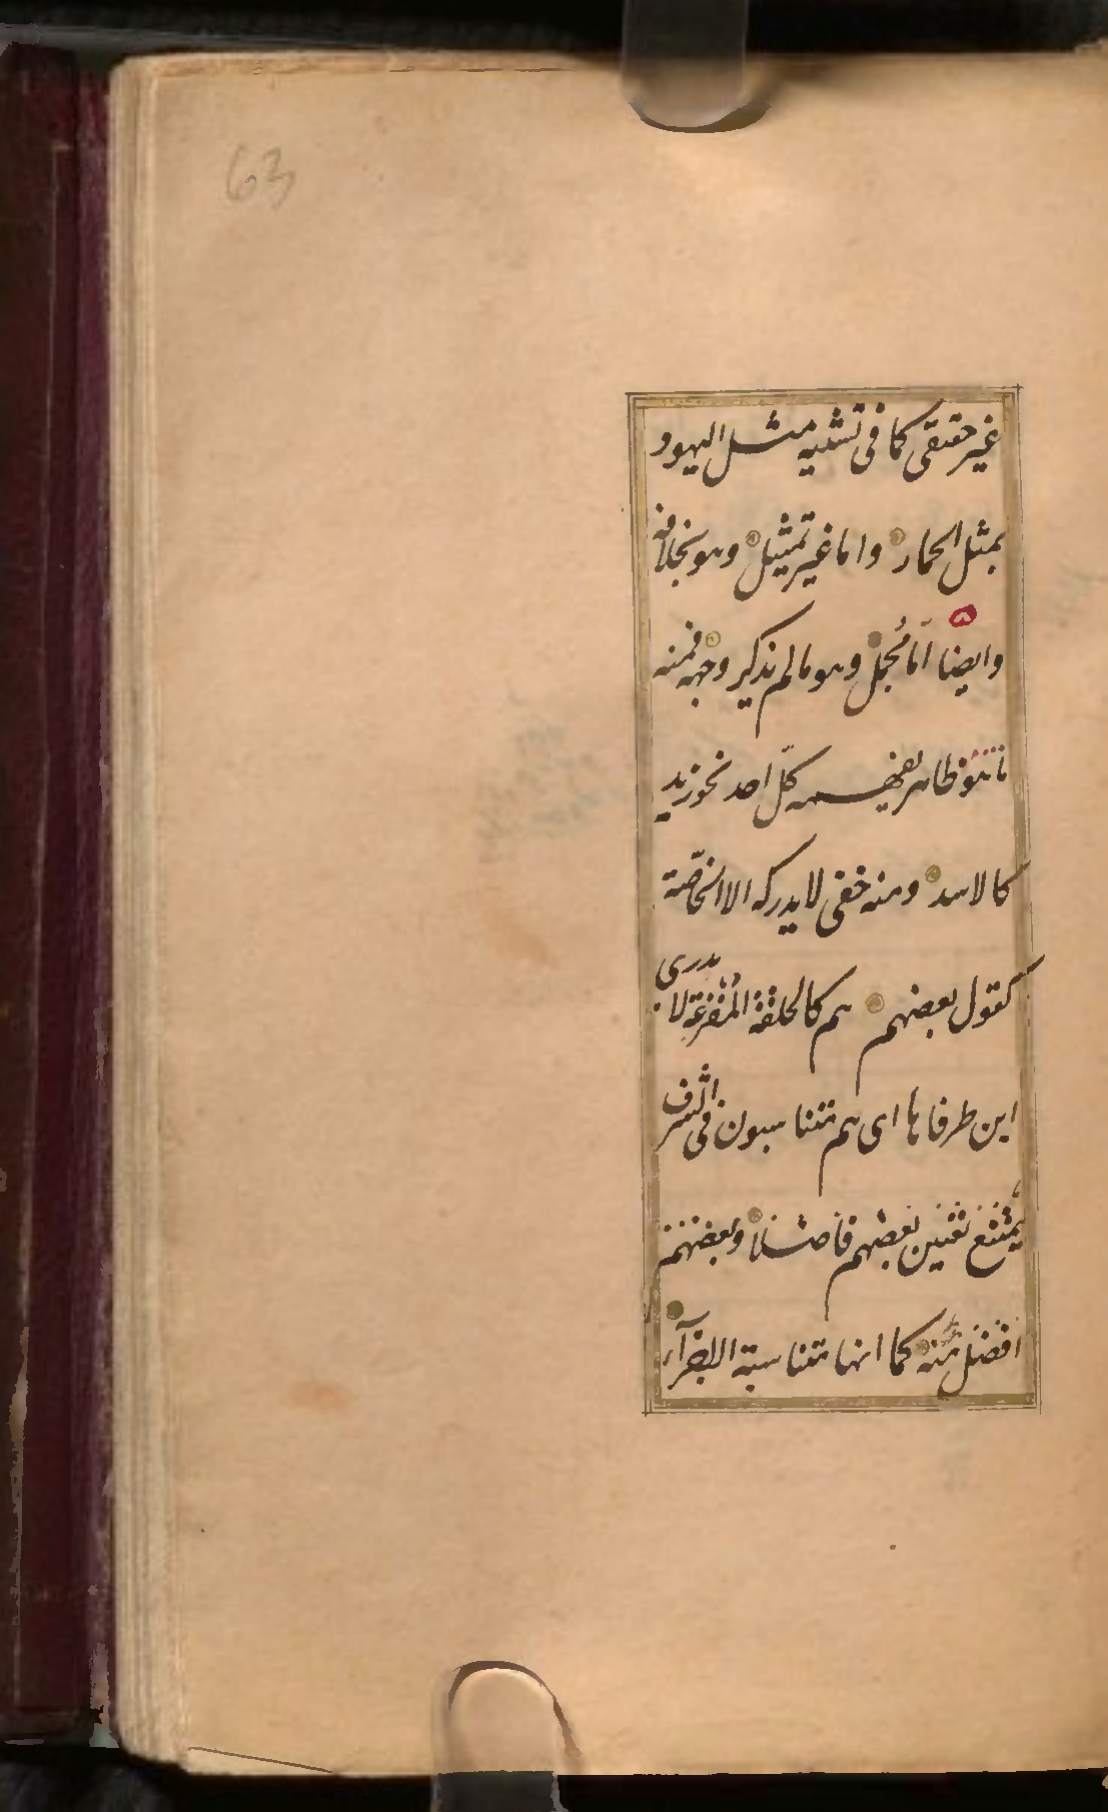 63
غير حقيقى كما فى تشبيه مثل اليهود
بمثل الحمار واما غير تمثيل وهو بخلافه
وايضا امّا مُجمل وهو ما لم يذكر وجهه فمنه
ظاهر يفهمه كلّ احد نحو زيد
كالاسد ومنه خفى لا يدركه الا الخاصّة
كقول بعضهم هم كالحلقة المُفرغة لا يدرى
اين طرفاها اى هم متناسبون فى الشرف
يمتنع تعيين بعضهم فاضلا وبعضهم
افضل منه كما انها متناسبة الاجزآء